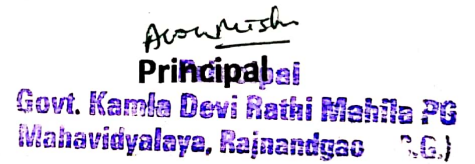 Principal
Principal
Govt. Kamla Devi Rathi Mahila PG
Mahavidyalaya, Rajnandgao C.G.)